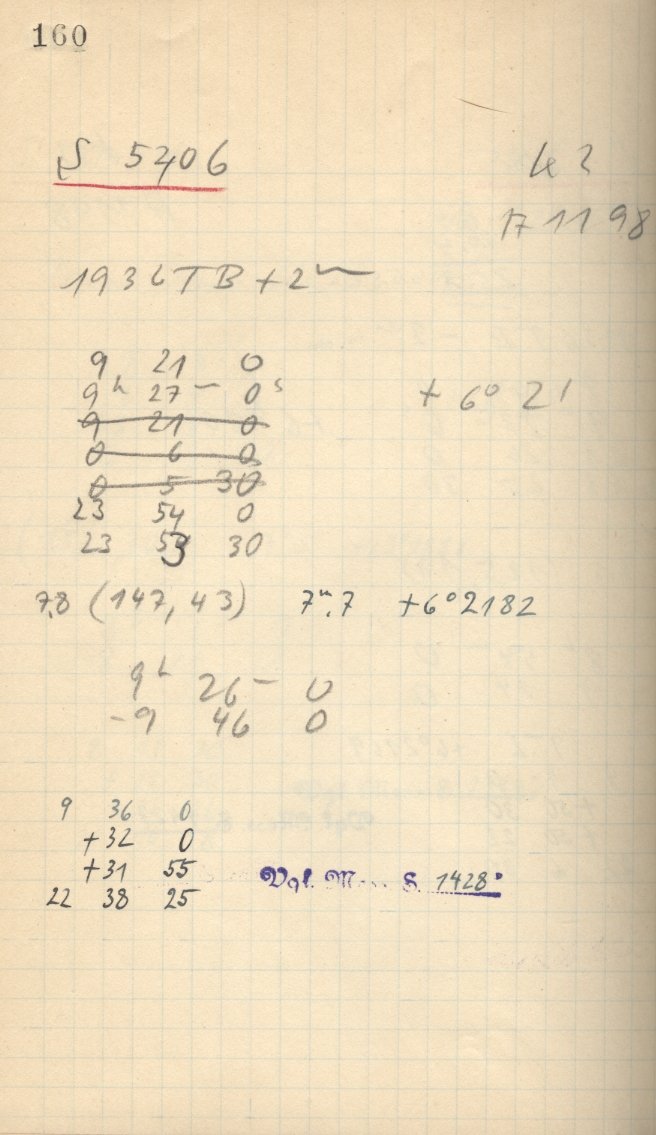 160
S 5206
43
17 11 98
1936 TB + 2ᵐ
9 21 0
9ʰ 27ᵐ 0ˢ + 6° 21
9 21 0
0 6 0
0 5 30
23 54 0
23 53 30
7,8 (147, 43) 7ᵐ,7 +6°2182
9ʰ 26ᵐ 0
-9 46 0
9 36 0
+32 0
+31 55
Vgl. S. 1428
22 38 25